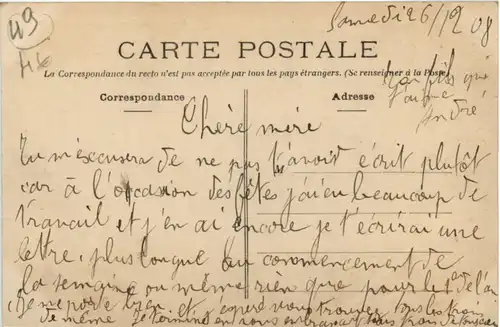 49
Samedi 26/12 08
CARTE POSTALE
La Correspondance du recto n'est pas acceptée par tous les pays étrangers. (Se renseigner à la Poste)
Correspondance
Adresse
Ton fils qui
t'aime
André
Chère mère
Tu m'excusera de ne pas t'avoir écrit plutôt
car à l'occasion des fêtes j'ai eu beaucoup de
travail et j'en ai encore je t'écrirai une
lettre plus longue au commencement de
la semaine ou même rien que pour le 1er de l'an
Je me porte bien et espère vous trouver tous les trois
de même Je termine en vous embrassant tous trois